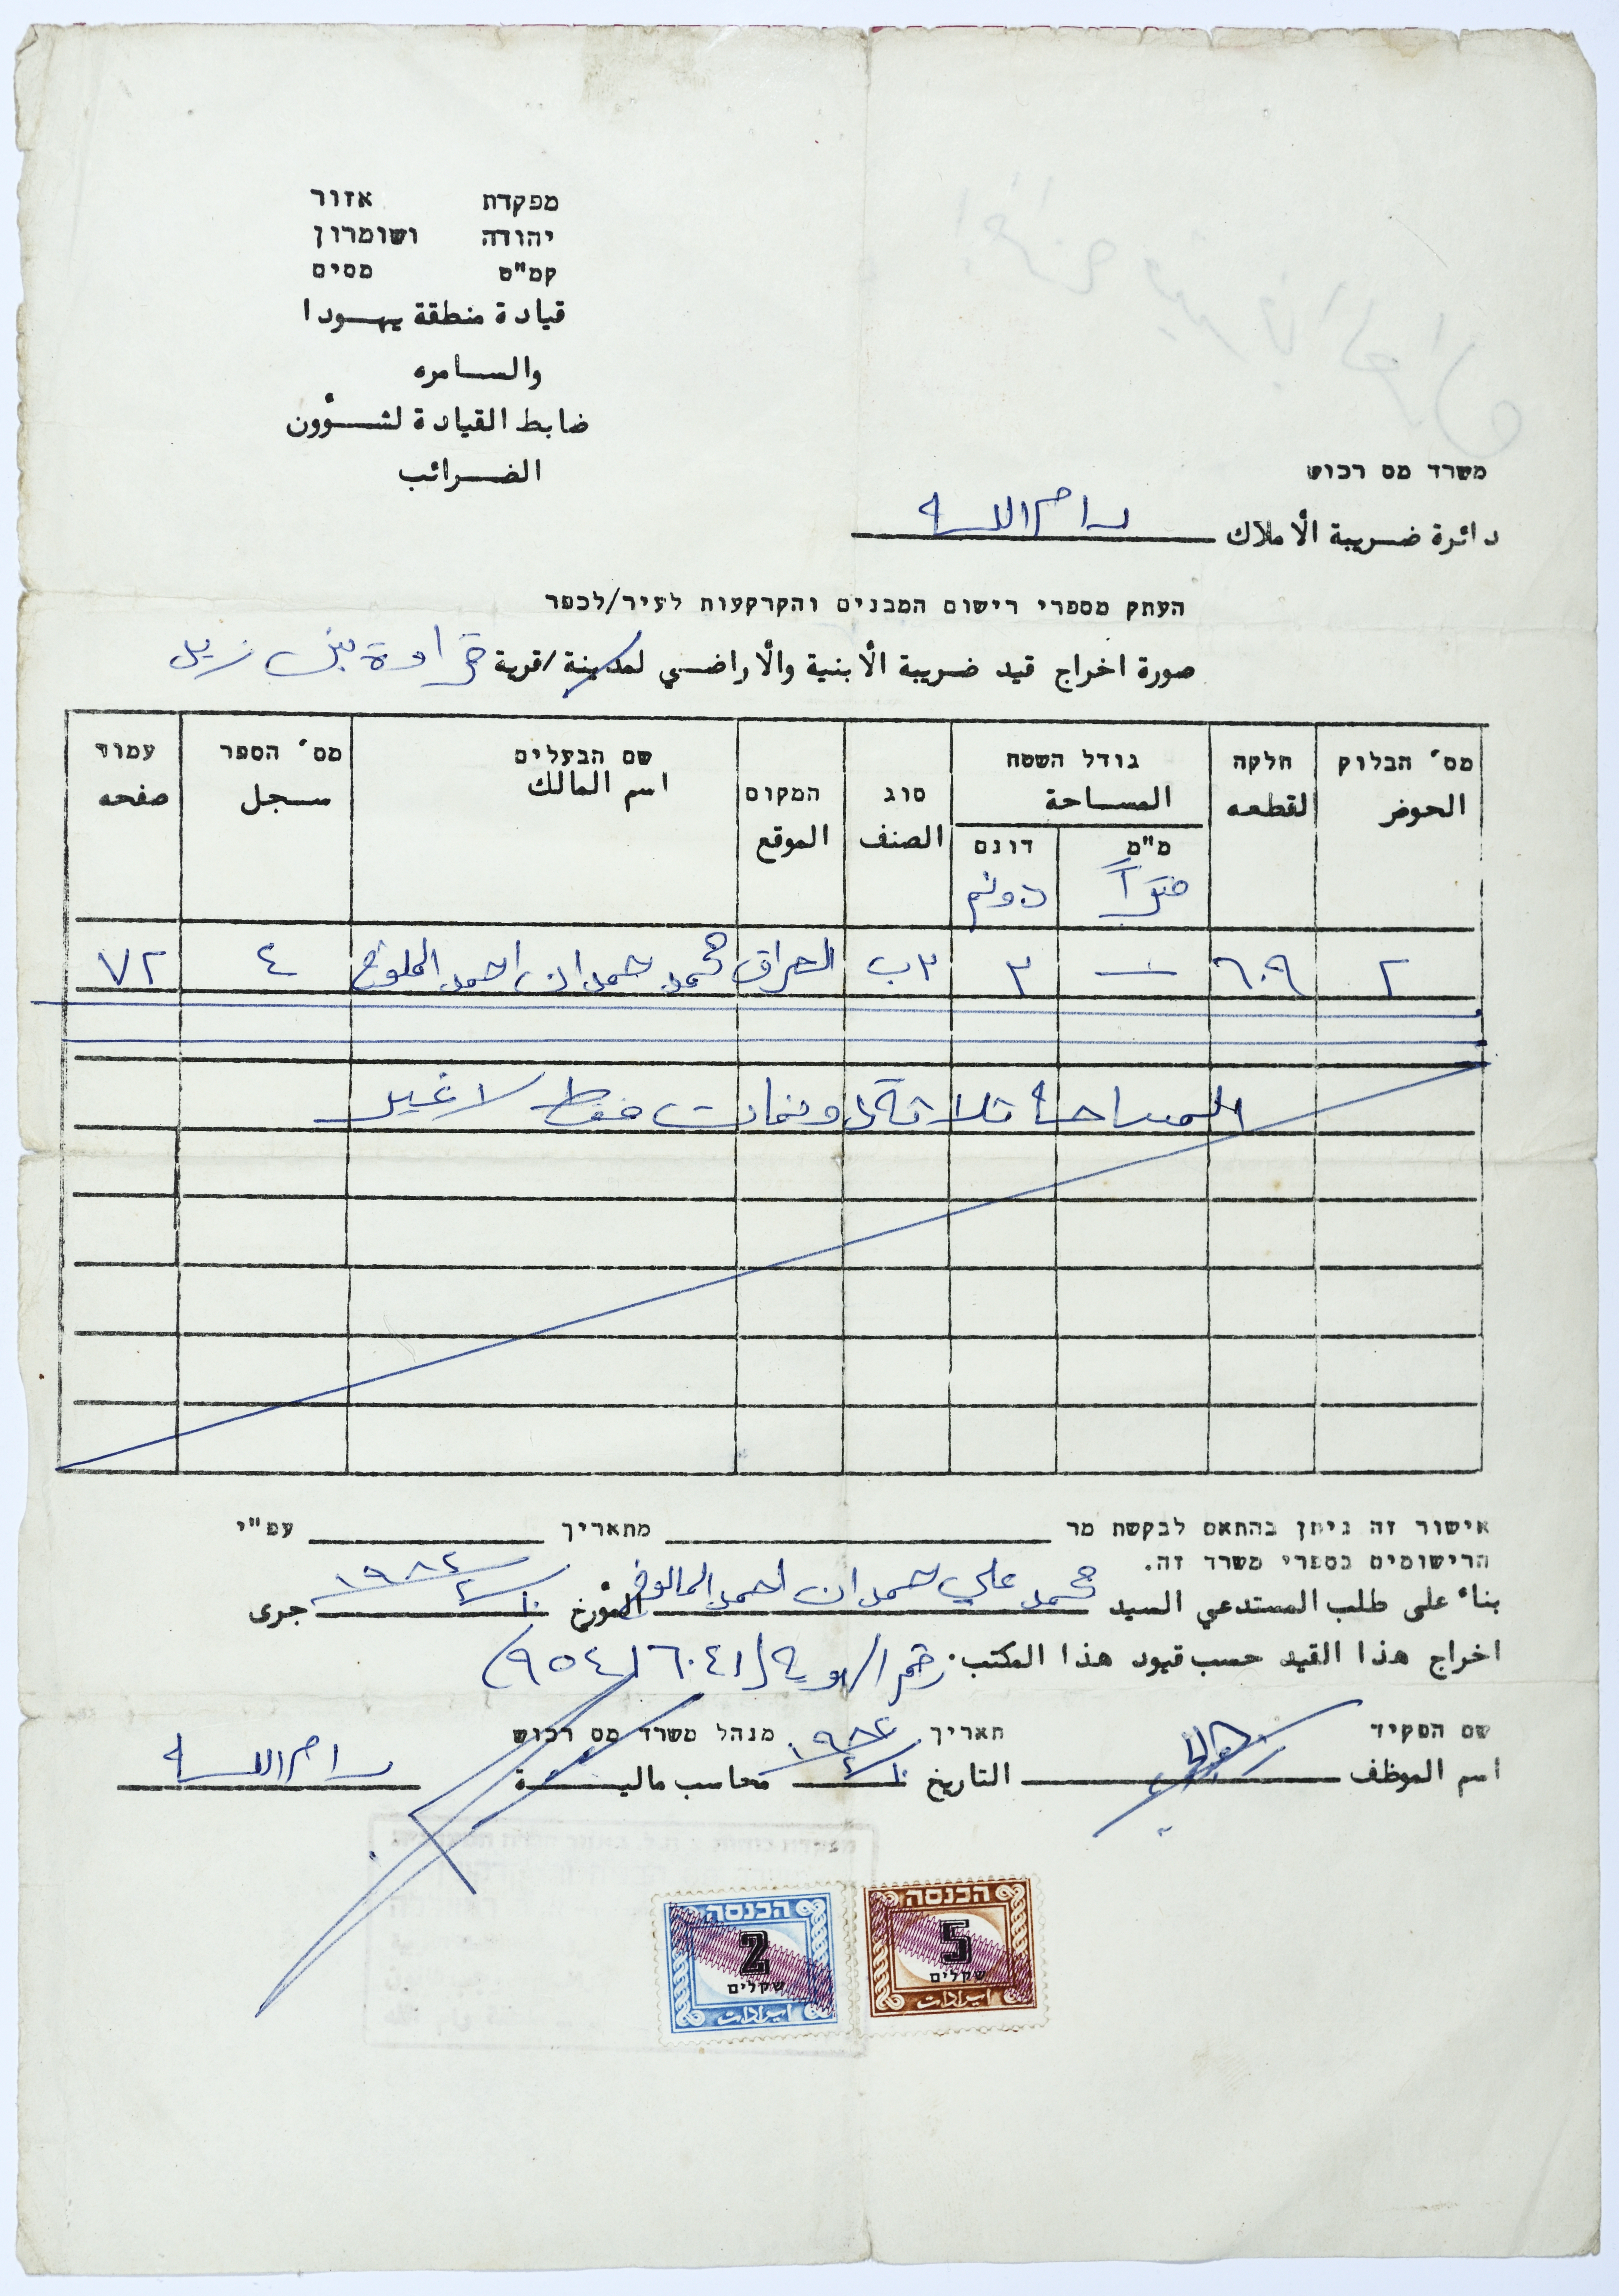 מפקדת אזור
יהודה ושומרון
קמ"ט מסים
قيادة منطقة يهودا
والسامره
ضابط القيادة لشؤون
الضرائب
משרד מס רכוש
دائرة ضريبة الأملاك رام الله
העתק מספרי רישום המבנים והקרקעות לעיר/לכפר
صورة اخراج قيد ضريبة الأبنية والأراضي لمدينة/قرية قراوة بني زيد
מס' הבלוק חלקה גודל השטח סוג המקום שם הבעלים מס' הספר עמוד
الحوض لقطعه المساحة الصنف الموقع اسم المالك سجل صفحه
מ"מ דונם
متراً دونم
٢ ٦٠٩ — ٣ ٣ب العراق محمد حمدان احمد ٤ ٧٢
المساحة ثلاثة دونمات فقط لا غير
אישור זה ניתן בהתאם לבקשת מר מתאריך עפ"י
הרישומים בספרי משרד זה.
بناء على طلب المستدعي السيد محمد علي حمدان احمد المورخ ١٩٨٤ جرى
اخراج هذا القيد حسب قيود هذا المكتب. رقم الهوية (٩٥٤١٦٠٤١)
שם הפקיד תאריך מנהל משרד מס רכוש
اسم الموظف التاريخ ١٩٨٤ محاسب مالية رام الله
הכנסה
2
שקלים
ايرادات
הכנסה
5
שקלים
ايرادات